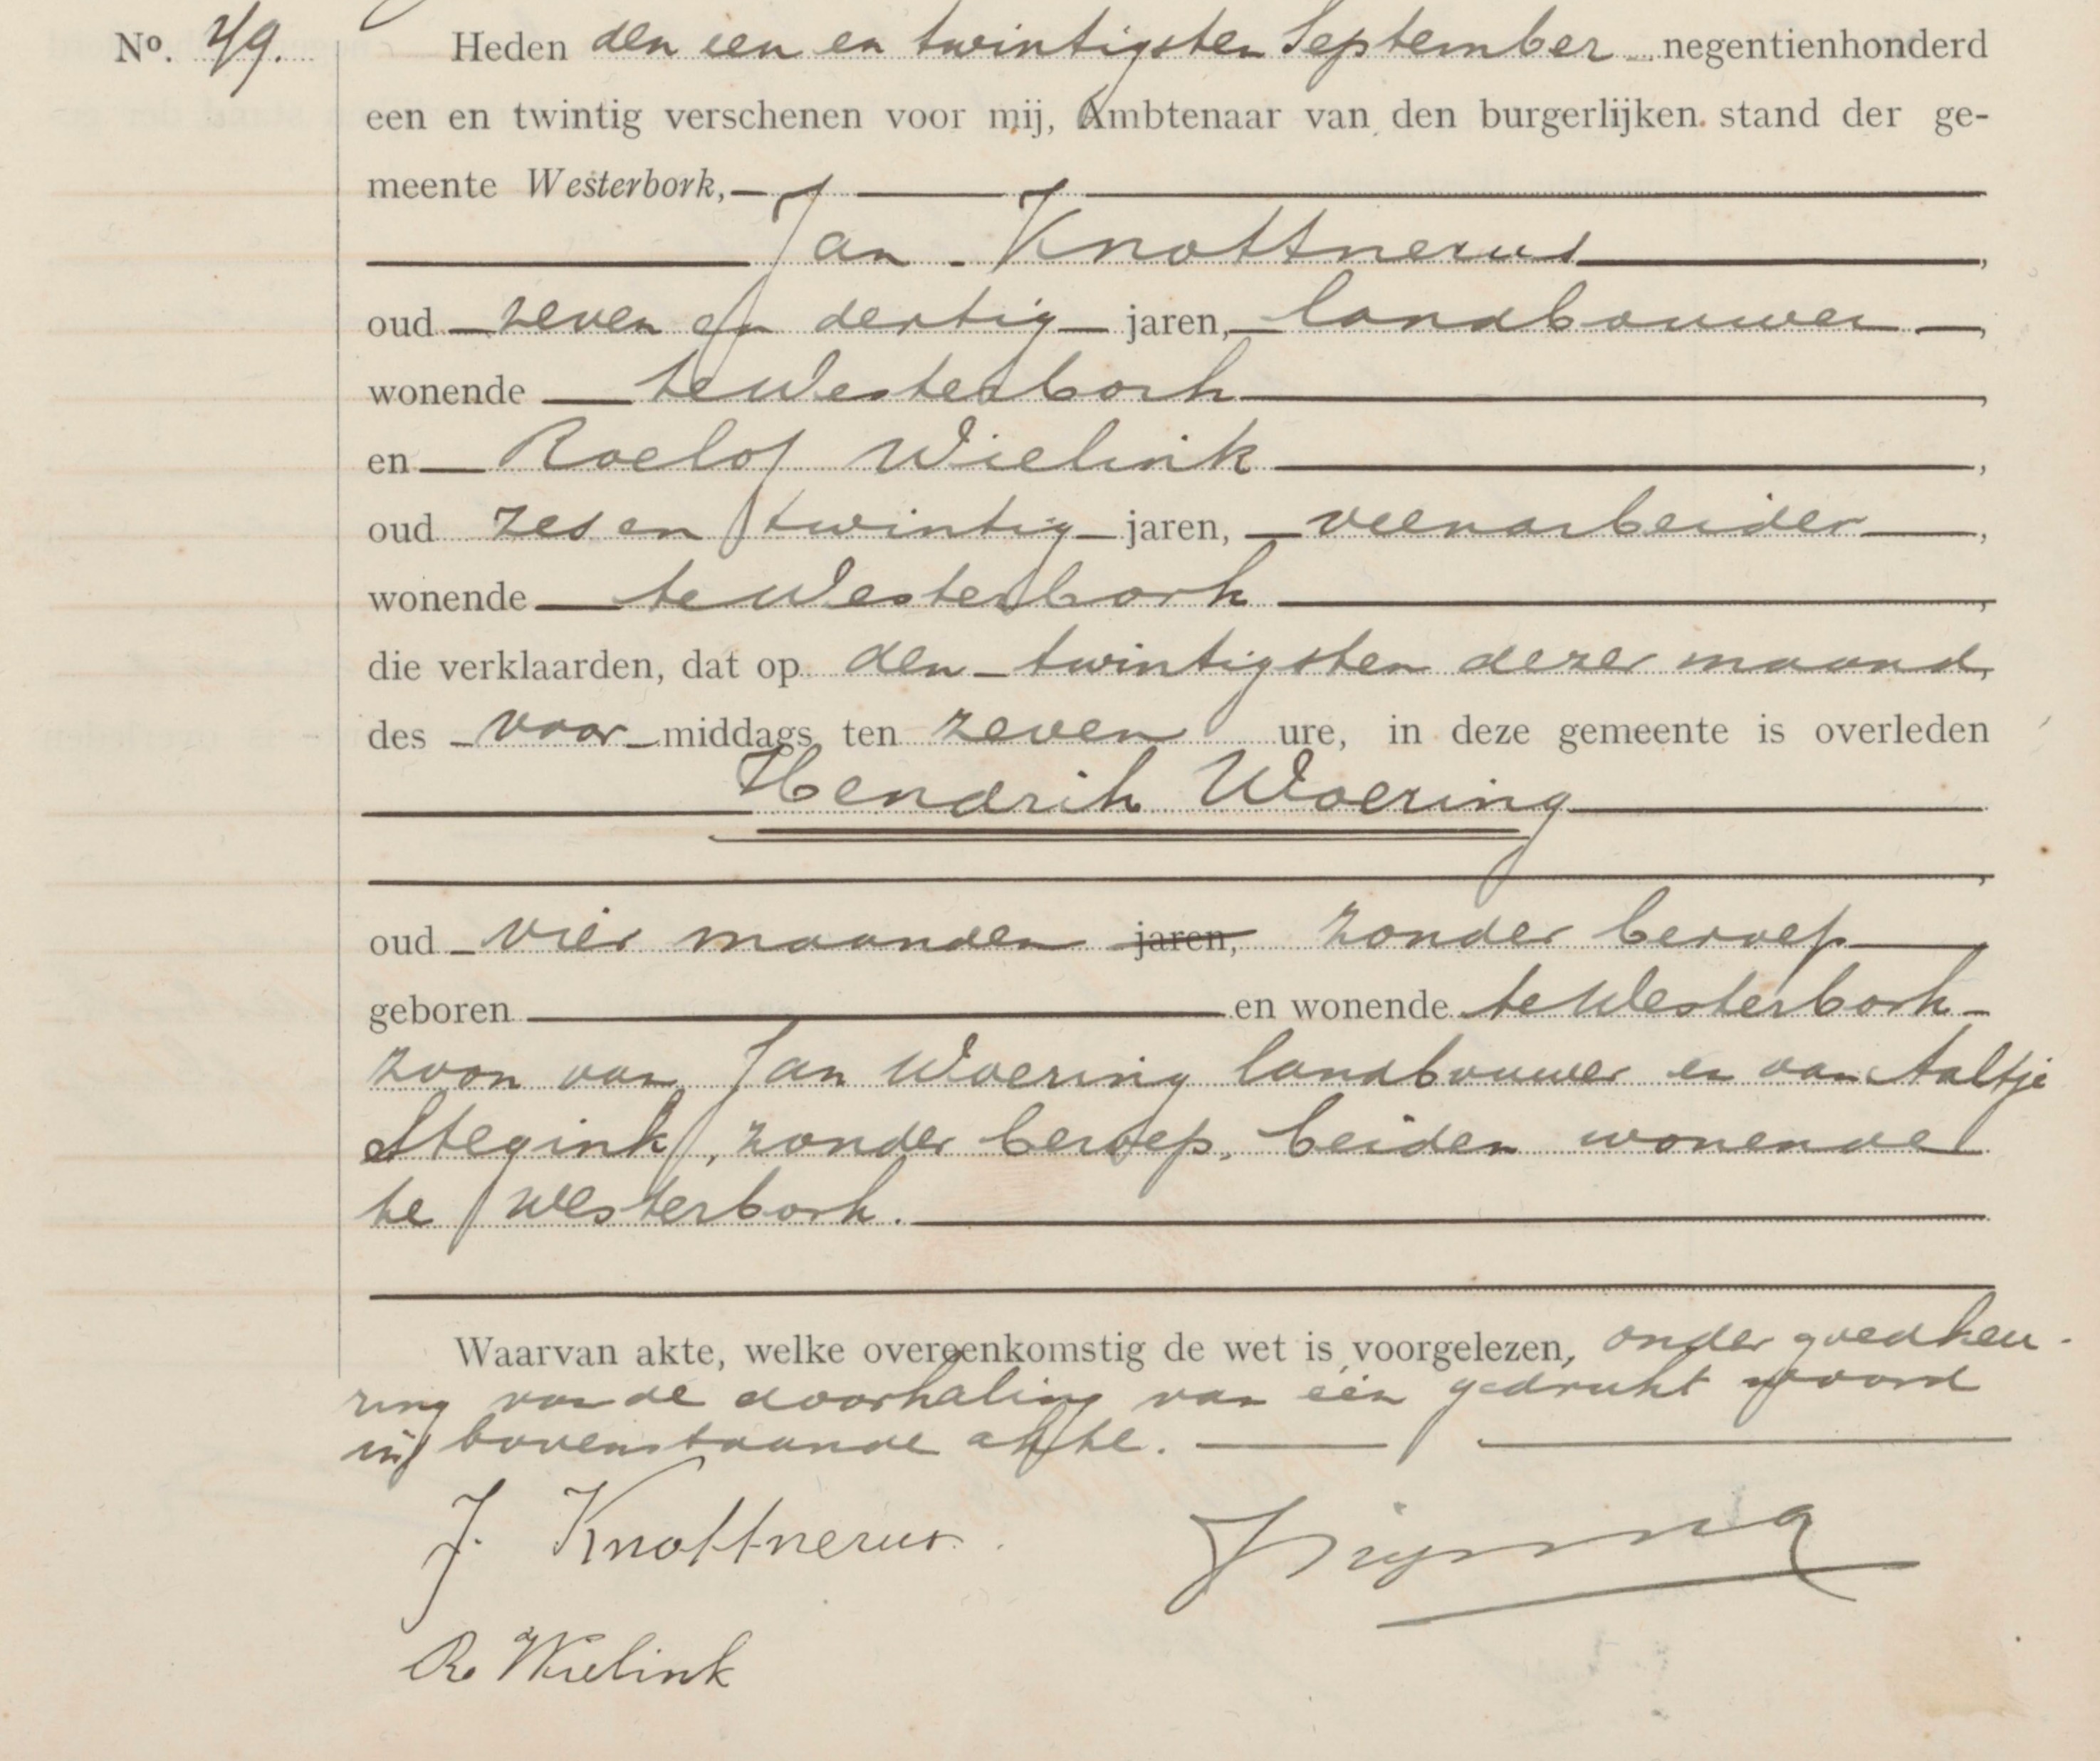 No. 49. Heden den een en twintigsten September negentienhonderd
een en twintig verschenen voor mij, Ambtenaar van den burgerlijken stand der ge-
meente Westerbork,
Jan Knottnerus,
oud zeven en dertig jaren, landbouwer,
wonende te Westerbork,
en Roelof Wielink,
oud zes en twintig jaren, veenarbeider,
wonende te Westerbork,
die verklaarden, dat op den twintigsten dezer maand,
des voor middags ten zeven ure, in deze gemeente is overleden
Hendrik Woering
,
oud vier maanden jaren, zonder beroep
geboren en wonende te Westerbork
zoon van Jan Woering landbouwer en van Aaltje
Stegink, zonder beroep, beiden wonende
te Westerbork.
Waarvan akte, welke overeenkomstig de wet is voorgelezen, onder goedkeu-
ring van de doorhaling van één gedrukt woord
in bovenstaande akte.
J. Knottnerus.
R. Wielink